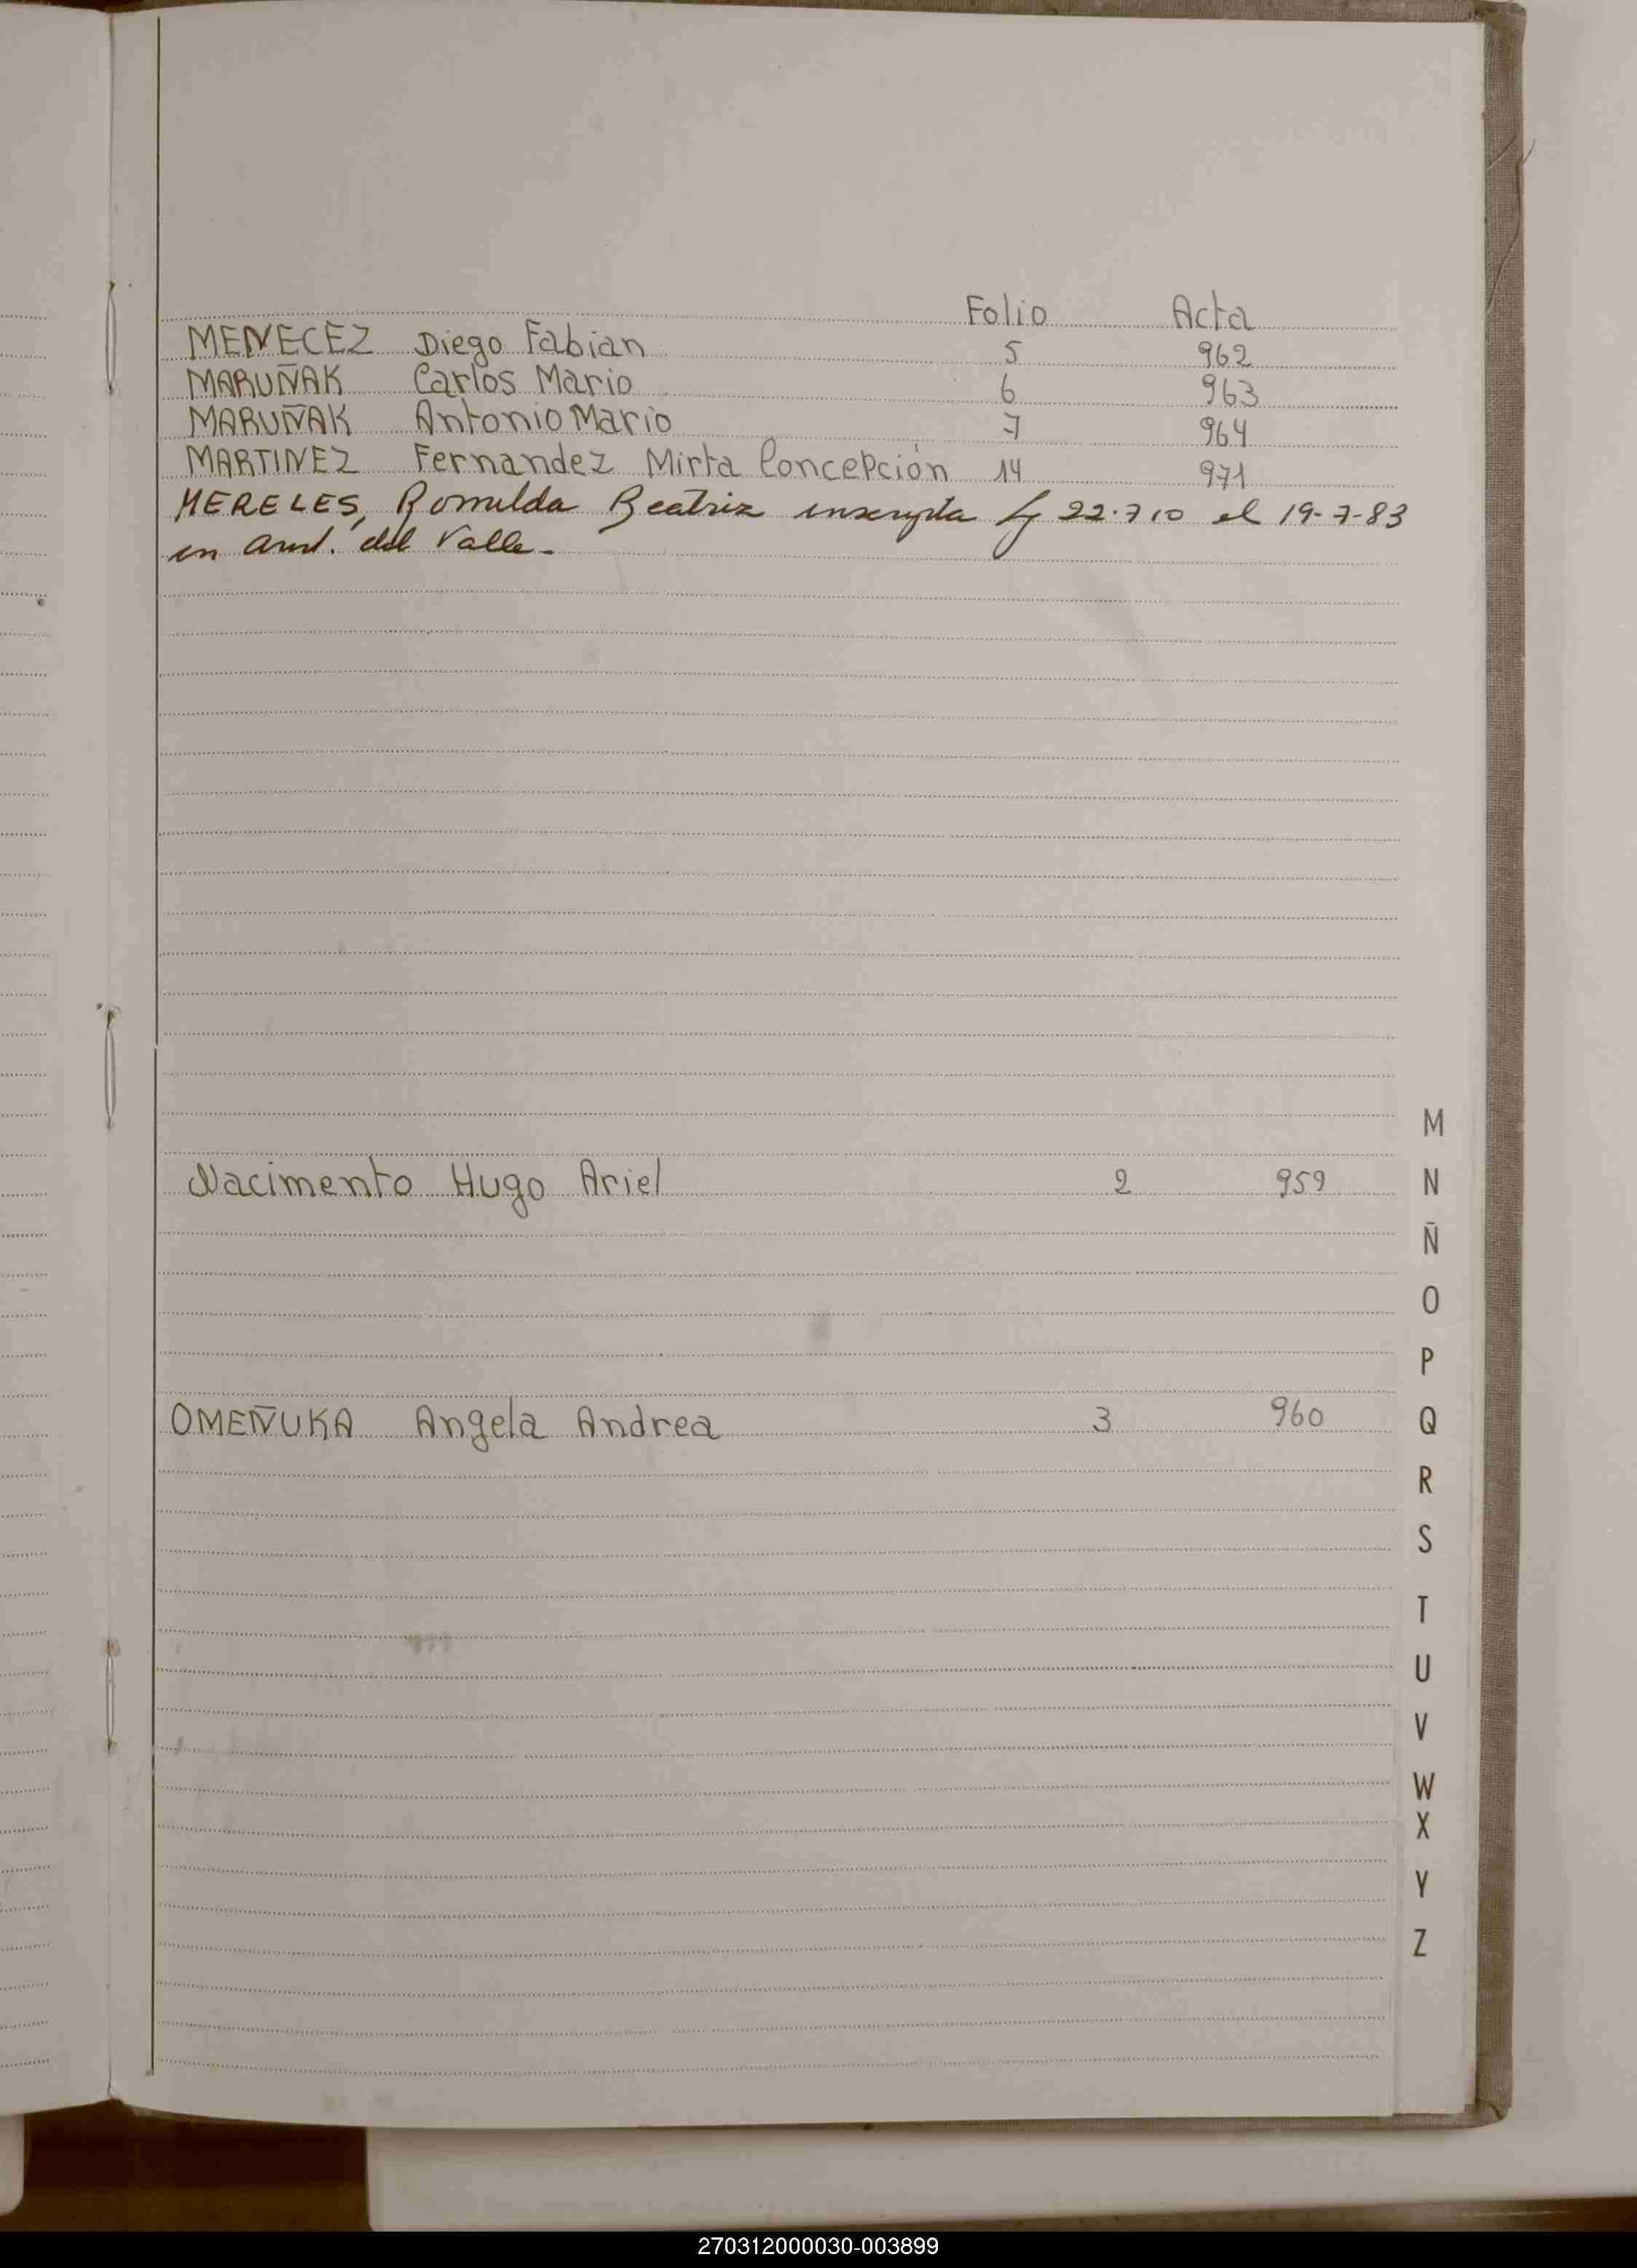 Folio Acta
MENECEZ Diego Fabian 5 962
MARUÑAK Carlos Mario 6 963
MARUÑAK Antonio Mario 7 964
MARTINEZ Fernandez Mirta Concepción 14 971
MERELES, Romulda Beatriz inscripta 22.710 el 19-7-83
en del Valle.-
M
Nacimento Hugo Ariel 2 959 N
Ñ
O
P
OMEÑUKA Angela Andrea 3 960 Q
R
S
T
U
V
W
X
Y
Z
270312000030-003899